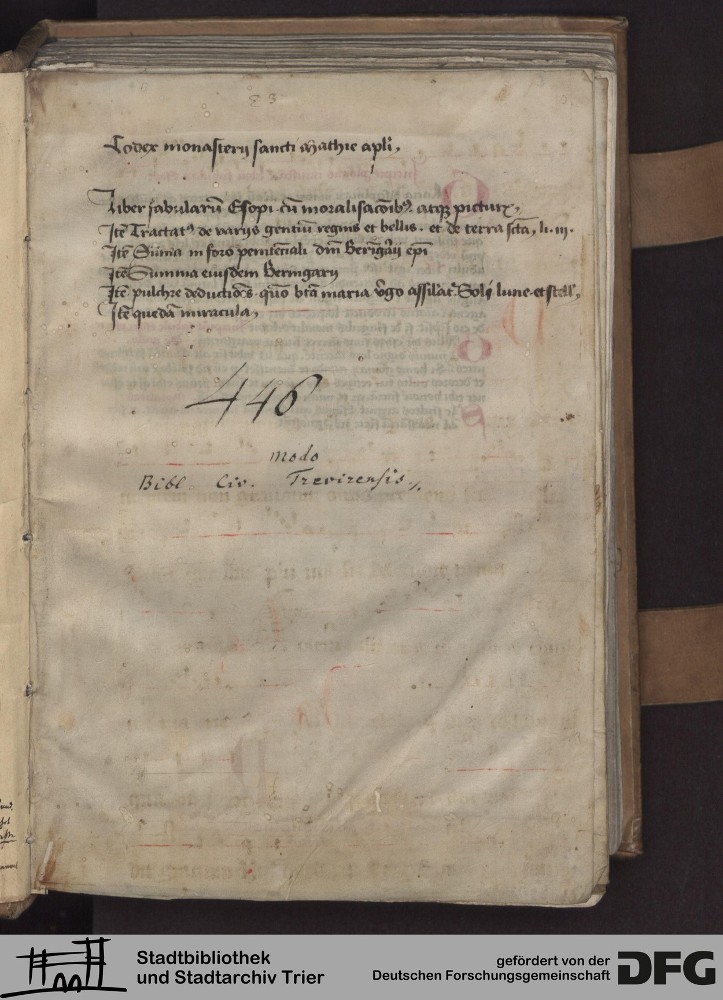 Codex monasterij sancti Mathie apli,
Liber fabularũ Esopi cũ moralisacõibꝰ atqꝫ picturꝭ,
Itẽ Tractatꝰ de varijs gentiũ regnis et bellis. et de terra scta, li. iij.
Itẽ Sũma in foro penitẽciali dni Berĩgarij epi
Itẽ Summa eiusdem Beringarij
Itẽ pulchre deductiões quõ bta maria virgo assilat Soli lune et stell,
Itẽ quedã miracula,
446
modo
Bibl. Civ. Trevirensis,
Stadtbibliothek
und Stadtarchiv Trier
gefördert von der
Deutschen Forschungsgemeinschaft
DFG